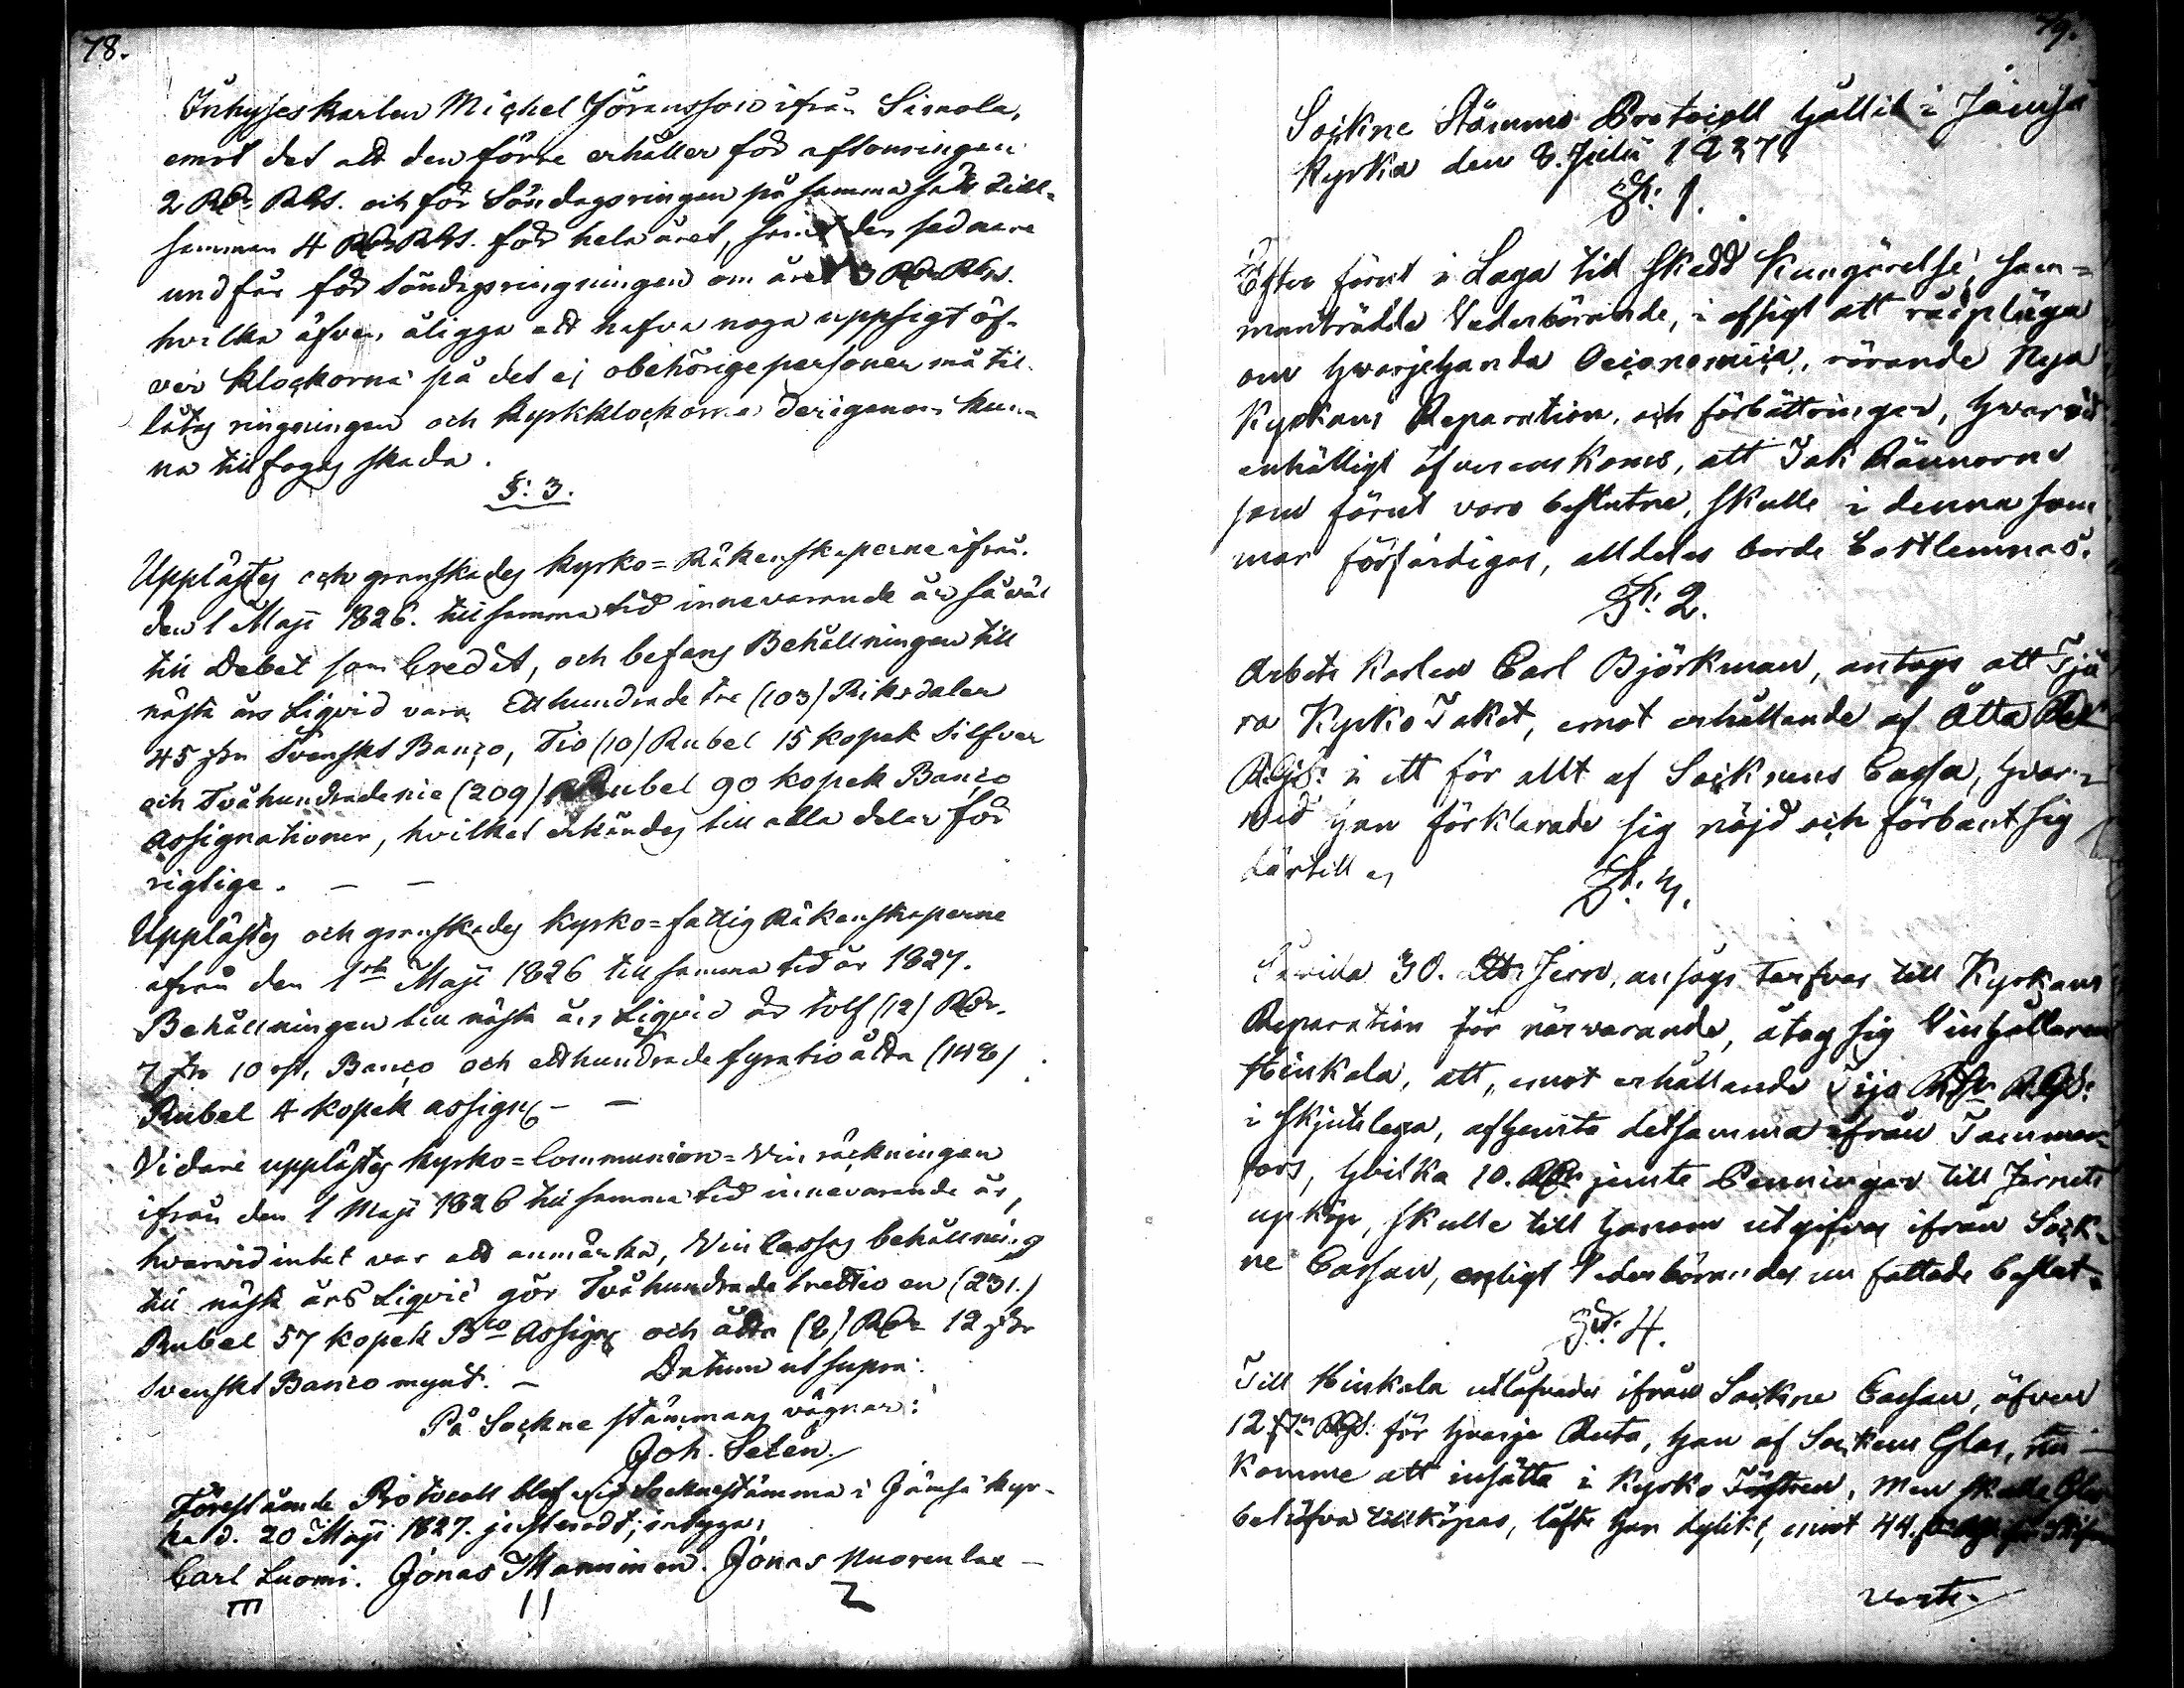 78.
Inhyseskarlen Michel Jöransson ifrån Simola,
emot det att den förre erhåller för aftonringen
2 RDr RGS. och för Söndagsringen på samma sätt till-
samman 4 RDr RGS. för hela året, samt den sednare
undfår för Söndagsringningen om året 3 RDr RGS.
hvilka äfven åligga att hafva noga uppsigt öf-
ver klockorna på det ej obehörige personer må til-
låtas ringningen och kyrkklockorna derigenom kun-
na tillfogas skada.
§: 3.
Upplästes och granskades Kyrko=Räkenskaperne ifrån
den 1 Maji 1826. till samma tid innevarande år så väl
till Debet som Credit, och befans Behållningen till
nästa års Liqvid vara Etthundrade tre (103) Riksdaler
45 s:r Svenskt Banco, Tio (10) Rubel 15 kopek Silfver
och Tvåhundrade nie (209) Rubel 90 kopek Banco
Assignationer, hvilket erkändes till alla delar för
rigtige. — —
Upplästes och granskades Kyrko=fattig Räkenskaperne
ifrån den 1sta Maji 1826 till samma tid år 1827.
Behållningen till nästa års Liqvid är tolf (12) RDr.
7 s:r 10 rst, Banco och etthundrade fyratio åtta (148)
Rubel 4 kopek assign — —
Vidare upplästes Kyrko=Communion=Vin räckningen
ifrån den 1 Maji 1826 till samma tid innevarande år,
hvarvid intet var att anmärka, Vin Cassas behållning
till nästa års Liqvid gör Tvåhundrade trettio en (231.)
Rubel 57 kopek Bco Assign och åtta (8) RDr 12 s:r
Svenskt Banco mynt. — Datum ut supra:
På Sockne stämmans vägnar:
Joh. Selén.
Förestående Protocoll blef vid Sockenstämma i Jämsä kyr-
ka d. 20 Maji 1827. justeradt; intyga:
Carl Luomi. Jonas Manninen. Jonas Nuorenlae —
79.
Sockne Stämmo Protocoll hållit i Jämsä
Kyrka den 8. Julii 1827.
§: 1.
Efter förut i Laga tid skedd Kungörelse, sam=
manträdde Vederbörande, i afsigt att rådpläga
om hvarjehanda Oeconomica, rörande Nya
Kyrkans Reparation, och förbättringar, hvarvid
enhälligt öfverenskoms, att Tak Rännorne
som förut voro beslutne, skulle i denna som
mar förfärdigas, alldeles borde bortlemnas.
§: 2.
Arbets Karlen Carl Björkman, antogs att Tjä
ra Kyrko Taket, emot erhållande af Åtta RDr
RGS: i ett för allt af Socknens Cassa, hvar-
med han förklarade sig nöjd och förbant sig
därtill
§: 3.
30. Jern, ansågs tarfvas till Kyrkans
Reparation för närvarande, åtog sig Vinhållaren
Hinkala, att, emot erhållande Tijo RDr RGS:
i skjutslega, afhemta detsamma ifrån Tammer-
fors, hvilka 10. RDr jemte Penningar till Järnets
upköp, skulle till honom utgifvas ifrån Sock-
ne Cassan, enligt Vederbörandes nu fattade beslut.
§: 4.
Till Hinkala utlofvades ifrån Sockne Cassan, äfven
12 s:r RGS: för hvarje Ruta, han af Sockens Glas,
komme att insätta i Kyrko Fönstren, Men skulle Glas
behöfva tillköpas, lofte han dylikt, emot 44.
verte